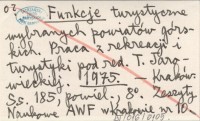 02. Funkcje turystyczne
wybranych powiatów górs-
kich. Praca z rekreacji i
turystyki pod red. T. Jaro-
wieckiej. 1975. - Kraków
S.s. 185; powiel.; 8°. Zeszyty
Naukowe AWF w Krakowie nr 10